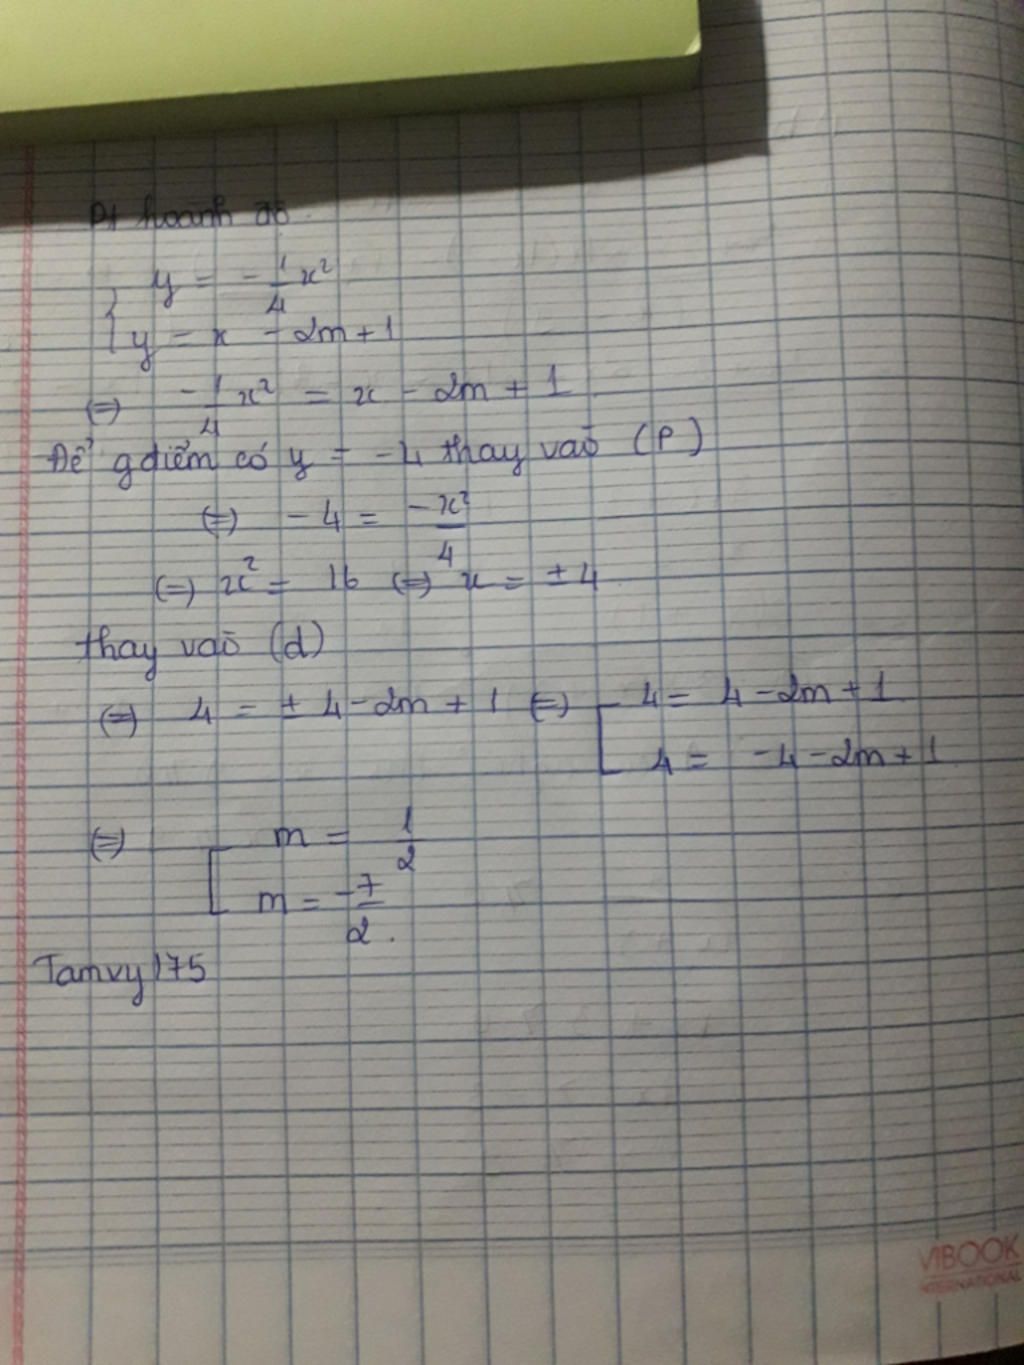 Pt hoành độ
{ y = -1/4 x²
y = x - 2m + 1
(=) -1/4 x² = x - 2m + 1
Để gđiểm có y = -4 thay vào (P)
(=) -4 = -x²/4
(=) x² = 16 (=) x = ±4
thay vào (d)
(=) 4 = ±4 - 2m + 1 (=) [ 4 = 4 - 2m + 1
4 = -4 - 2m + 1
(=) [ m = 1/2
m = -7/2.
Tamvy175
VIBOOK
INTERNATIONAL